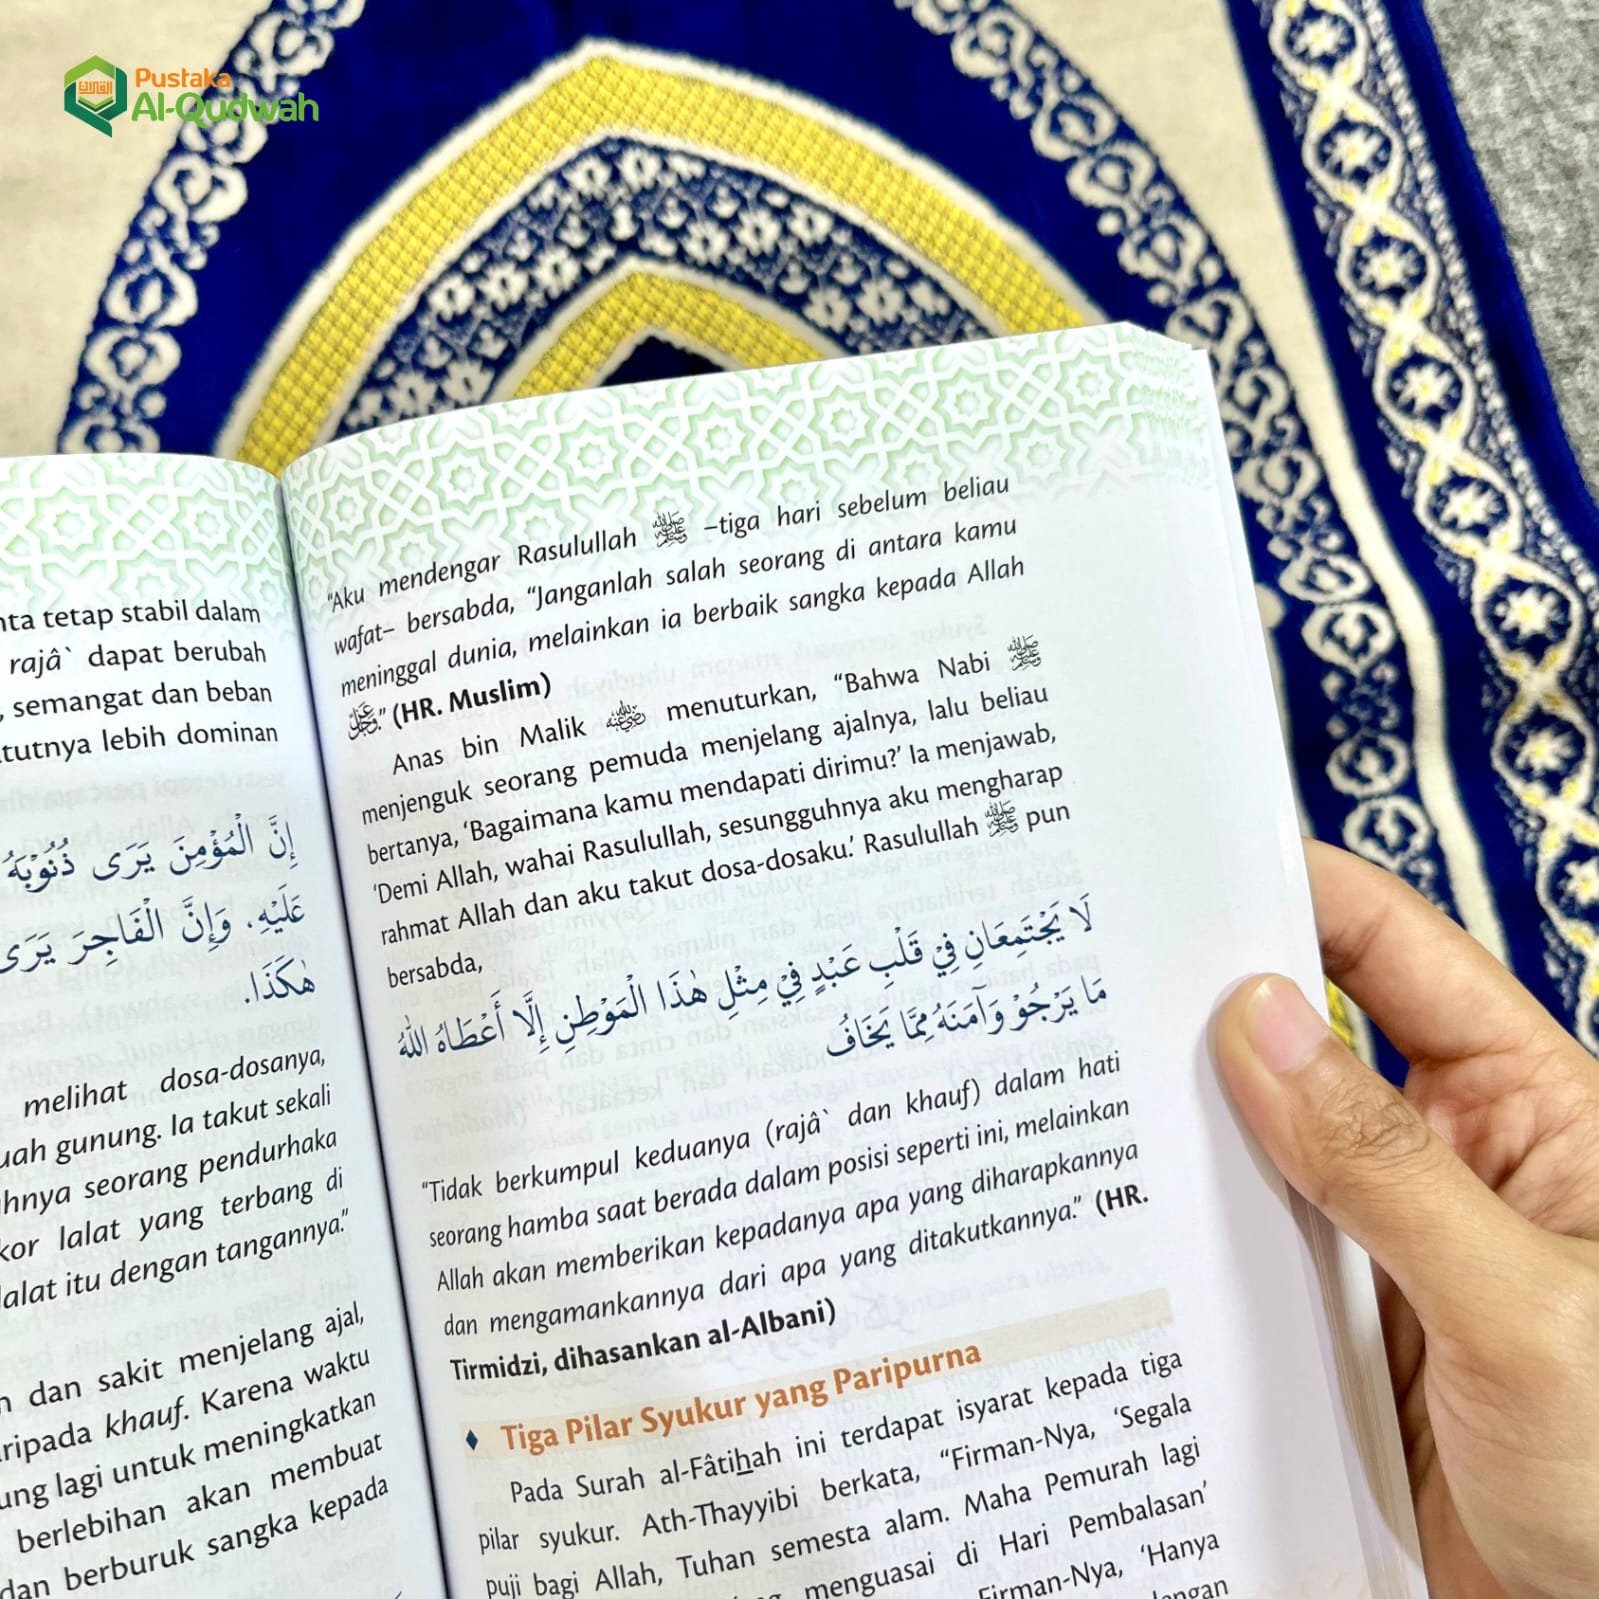 Pustaka
Al-Qudwah
tetap stabil dalam
rajâ` dapat berubah
, semangat dan beban
lebih dominan
إِنَّ الْمُؤْمِنَ يَرَى ذُنُوْبَهُ
عَلَيْهِ، وَإِنَّ الْفَاجِرَ يَرَى
هٰكَذَا.
melihat dosa-dosanya,
gunung. Ia takut sekali
seorang pendurhaka
lalat yang terbang di
lalat itu dengan tangannya."
dan sakit menjelang ajal,
khauf. Karena waktu
lagi untuk meningkatkan
berlebihan akan membuat
dan berburuk sangka kepada
"Aku mendengar Rasulullah ﷺ –tiga hari sebelum beliau
wafat– bersabda, "Janganlah salah seorang di antara kamu
meninggal dunia, melainkan ia berbaik sangka kepada Allah
عَزَّ وَجَلَّ." (HR. Muslim)
Anas bin Malik رضي الله عنه menuturkan, "Bahwa Nabi ﷺ
menjenguk seorang pemuda menjelang ajalnya, lalu beliau
bertanya, 'Bagaimana kamu mendapati dirimu?' Ia menjawab,
'Demi Allah, wahai Rasulullah, sesungguhnya aku mengharap
rahmat Allah dan aku takut dosa-dosaku.' Rasulullah ﷺ pun
bersabda,
لَا يَجْتَمِعَانِ فِيْ قَلْبِ عَبْدٍ فِيْ مِثْلِ هٰذَا الْمَوْطِنِ إِلَّا أَعْطَاهُ اللهُ
مَا يَرْجُوْ وَآمَنَهُ مِمَّا يَخَافُ
"Tidak berkumpul keduanya (rajâ` dan khauf) dalam hati
seorang hamba saat berada dalam posisi seperti ini, melainkan
Allah akan memberikan kepadanya apa yang diharapkannya
dan mengamankannya dari apa yang ditakutkannya." (HR.
Tirmidzi, dihasankan al-Albani)
♦ Tiga Pilar Syukur yang Paripurna
Pada Surah al-Fâtihah ini terdapat isyarat kepada tiga
pilar syukur. Ath-Thayyibi berkata, "Firman-Nya, 'Segala
puji bagi Allah, Tuhan semesta alam. Maha Pemurah lagi
menguasai di Hari Pembalasan'
Firman-Nya, 'Hanya